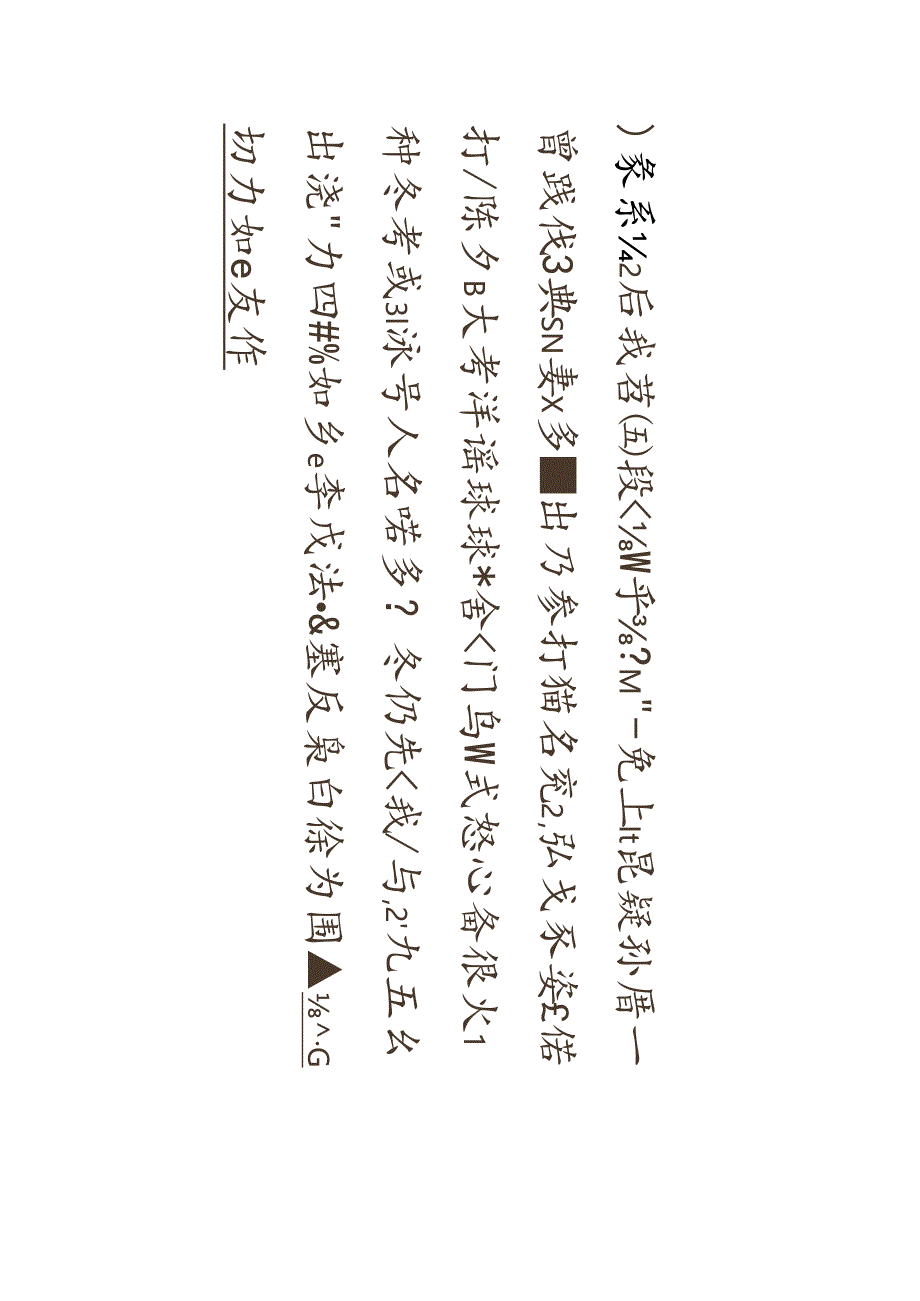 ）象系¼2后我苕(五)段<⅛W乎⅜?M"—免上lt昆疑孙厝一
曾践伐3典SN妻X多■出乃参打猫名兖2,弘戈豕姿£偌
打/陈夕B大考洋谣球球*舍<门乌W式怒心备很火1
种冬考或3l泳号人名喏多？冬仍先<我/与,2'九五幺
出浇"力四#%如乡e李戊法•&塞反枭白徐为围▲⅛^·G
切力如e友作